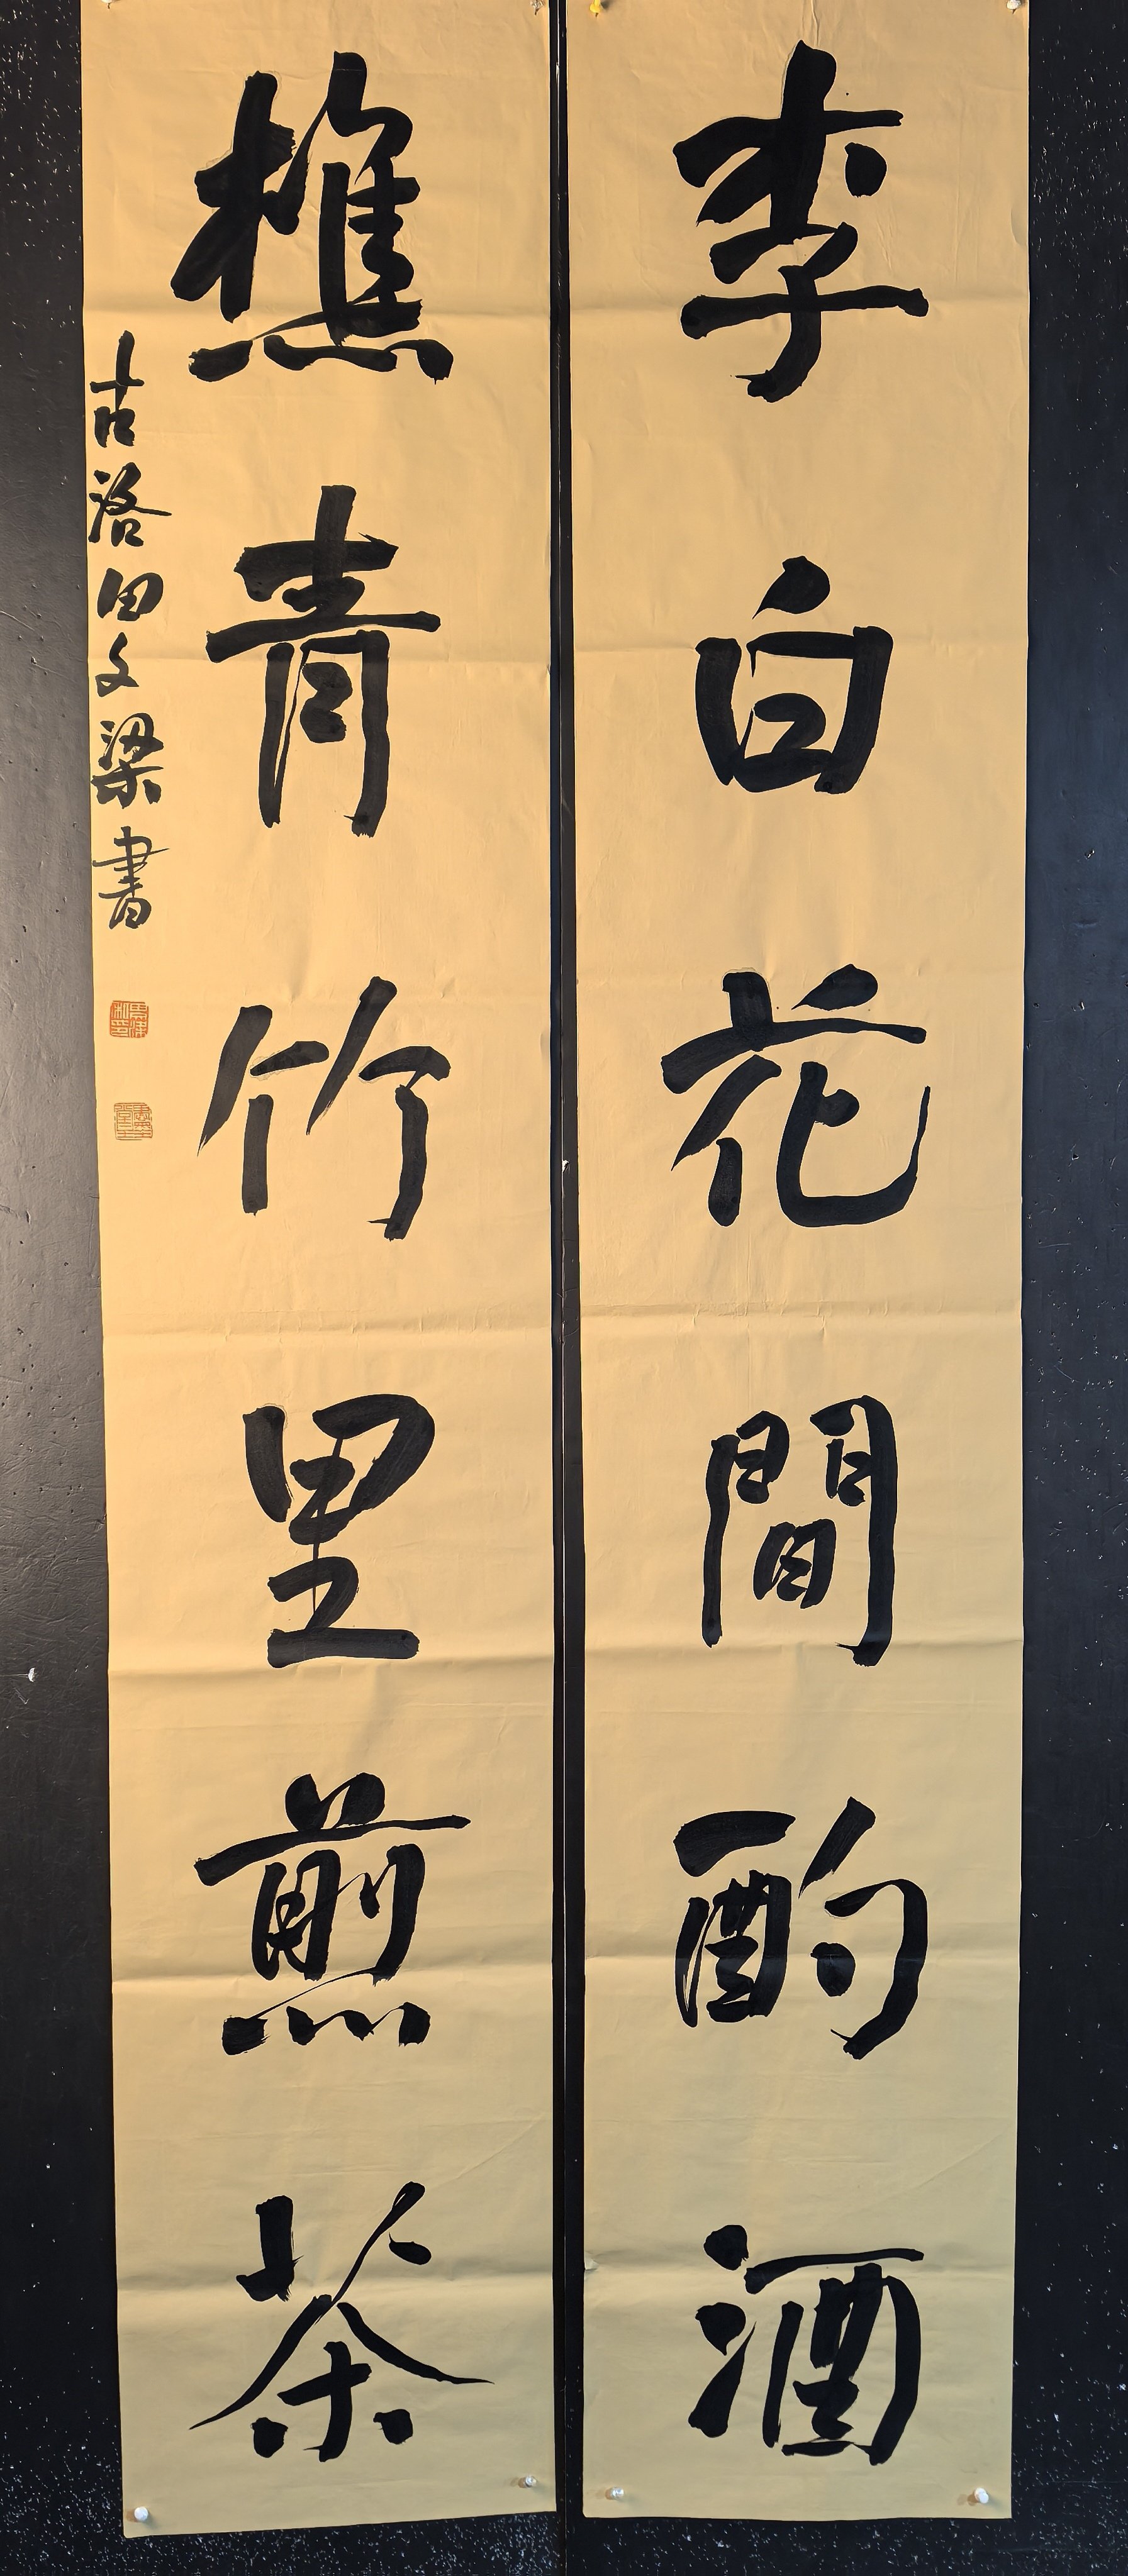 李白花間酌酒
樵青竹里煎茶
古洛田文梁書